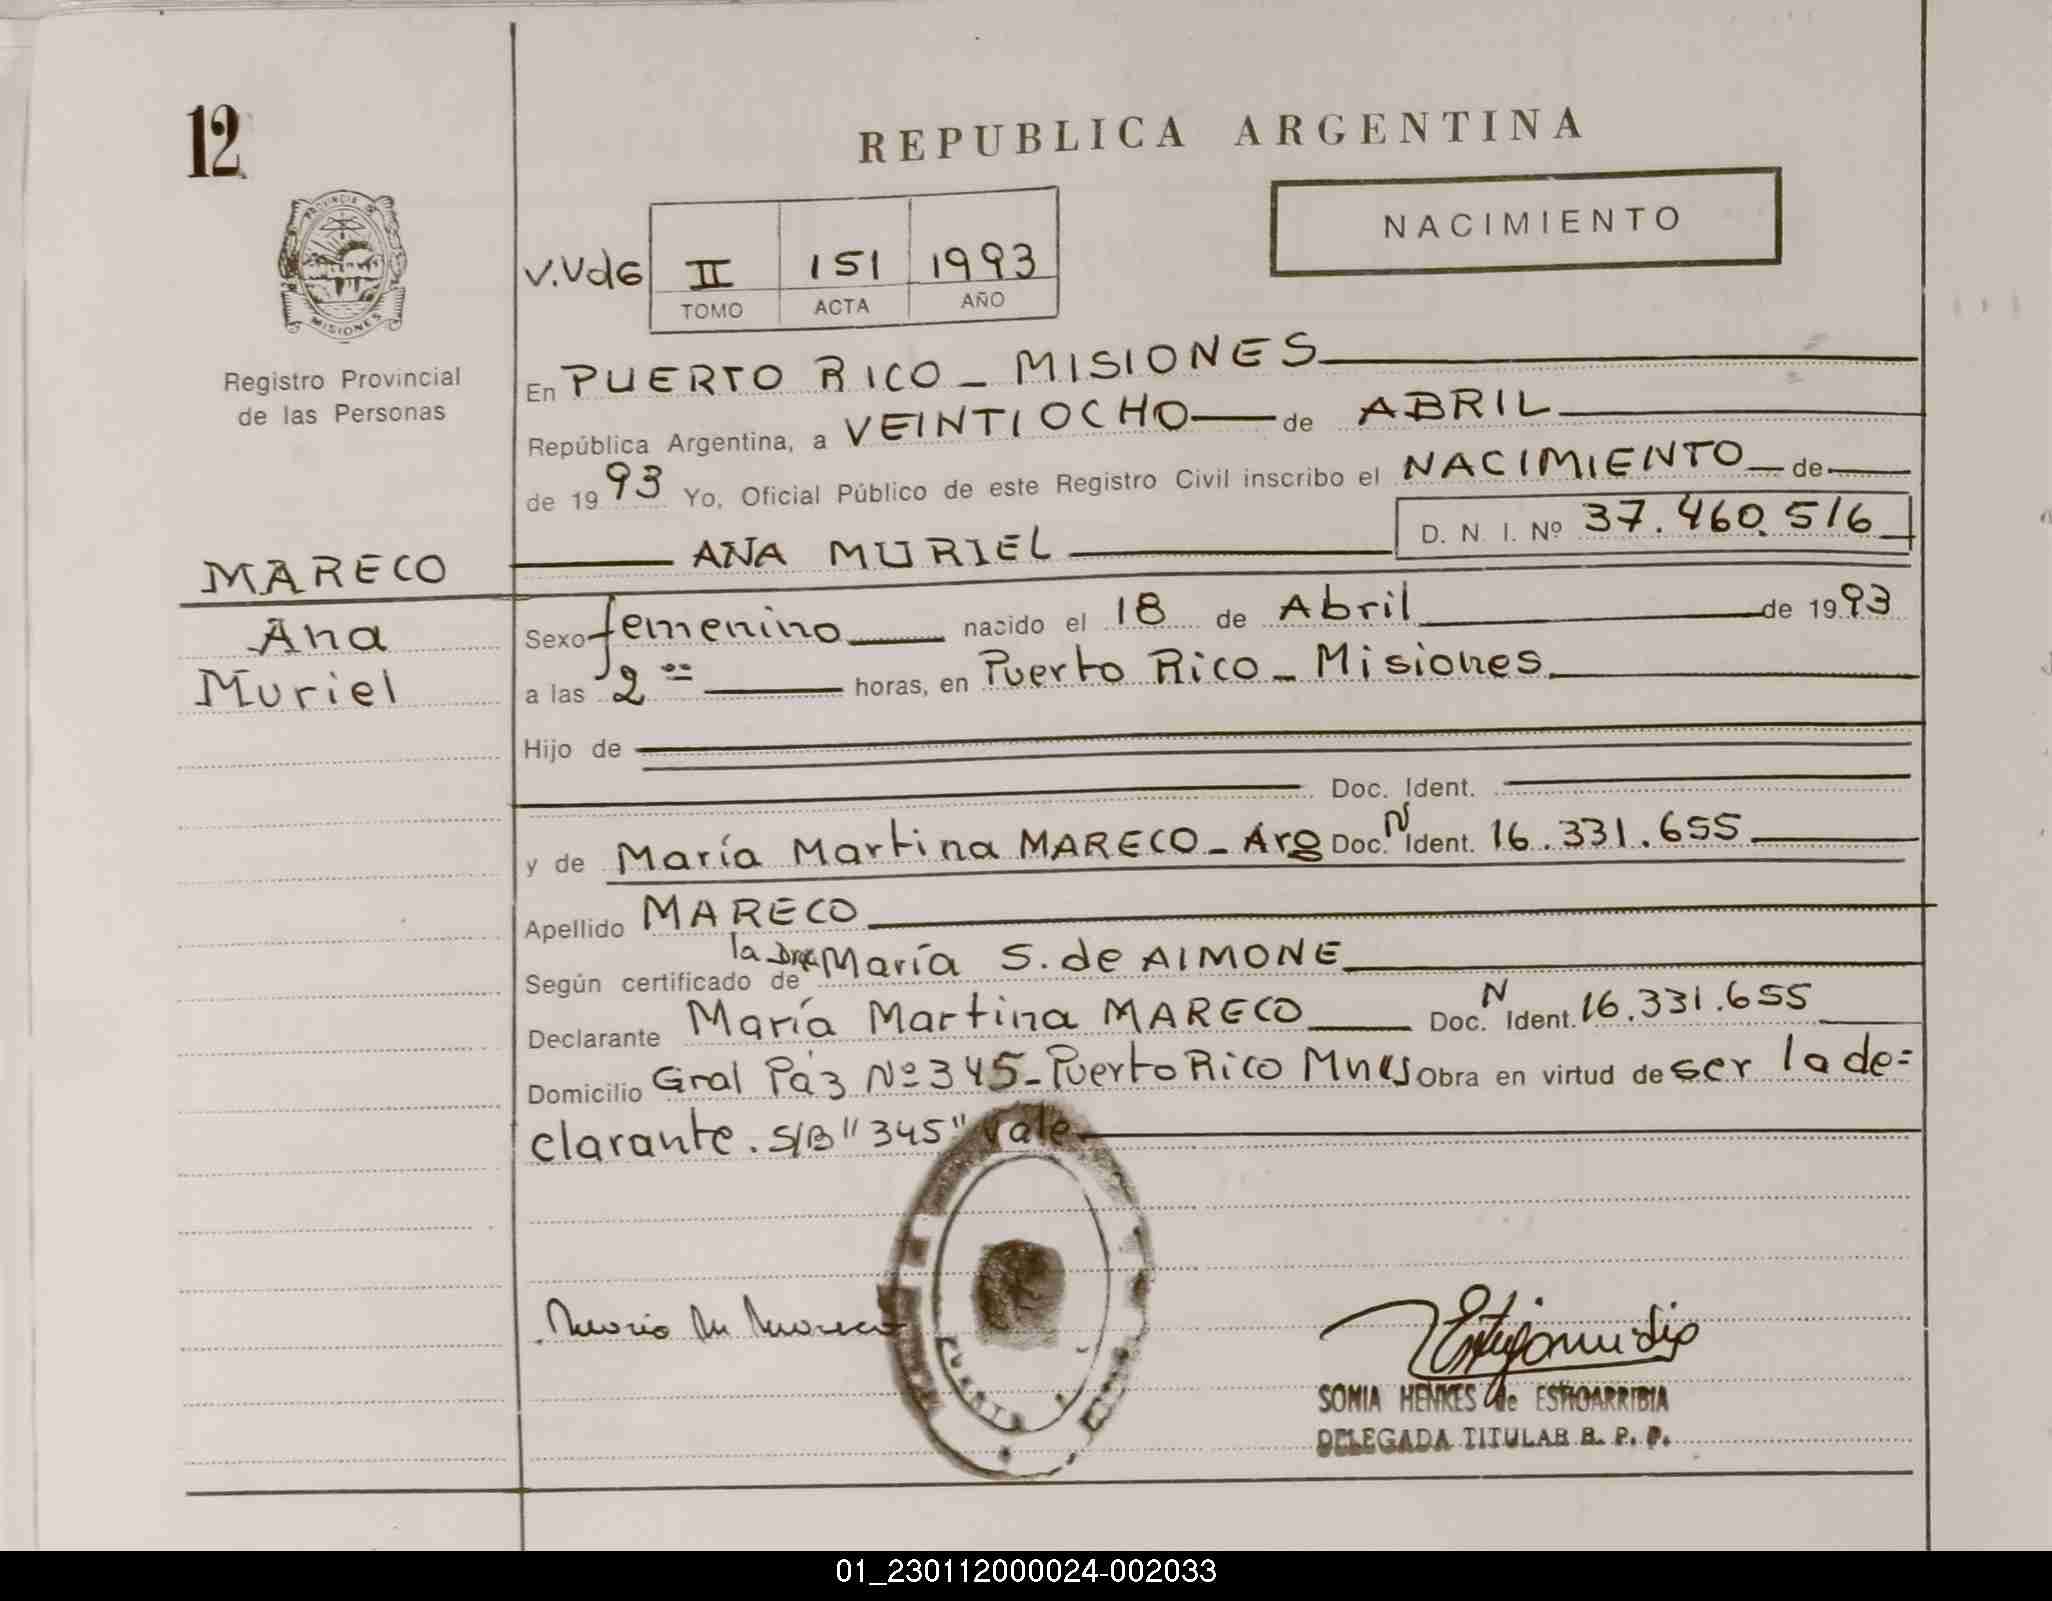 12
REPUBLICA ARGENTINA
PROVINCIA DE
MISIONES
NACIMIENTO
II 151 1993
TOMO ACTA AÑO
Registro Provincial
de las Personas
En PUERTO RICO - MISIONES
República Argentina, a VEINTIOCHO de ABRIL
de 1993 Yo, Oficial Público de este Registro Civil inscribo el NACIMIENTO de
D. N. I. Nº 37.460.516
MARECO ANA MURIEL
Ana
Muriel
Sexo femenino nacido el 18 de Abril de 1993
a las 2 horas, en Puerto Rico - Misiones
Hijo de
Doc. Ident.
y de María Martina MARECO - Arg Doc. N Ident. 16.331.655
Apellido MARECO
Según certificado de la Dra María S. de AIMONE
Declarante María Martina MARECO Doc. N Ident. 16.331.655
Domicilio Gral Páz Nº 345 - Puerto Rico Mnes Obra en virtud de ser la de=
clarante. S/B "345" Vale
SONIA HENKES de
DELEGADA TITULAR R. P. P.
01_230112000024-002033